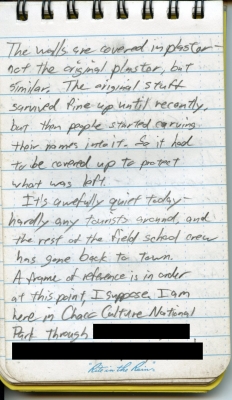 The walls are covered in plaster—
not the original plaster, but
similar. The original stuff
survived fine up until recently,
but then people started carving
their names into it. So it had
to be covered up to protect
what was left.
It's awefully quiet today—
hardly any tourists around, and
the rest of the field school crew
has gone back to town.
A frame of reference is in order
at this point, I suppose. I am
here in Chaco Culture National
Park through
"Rite in the Rain"